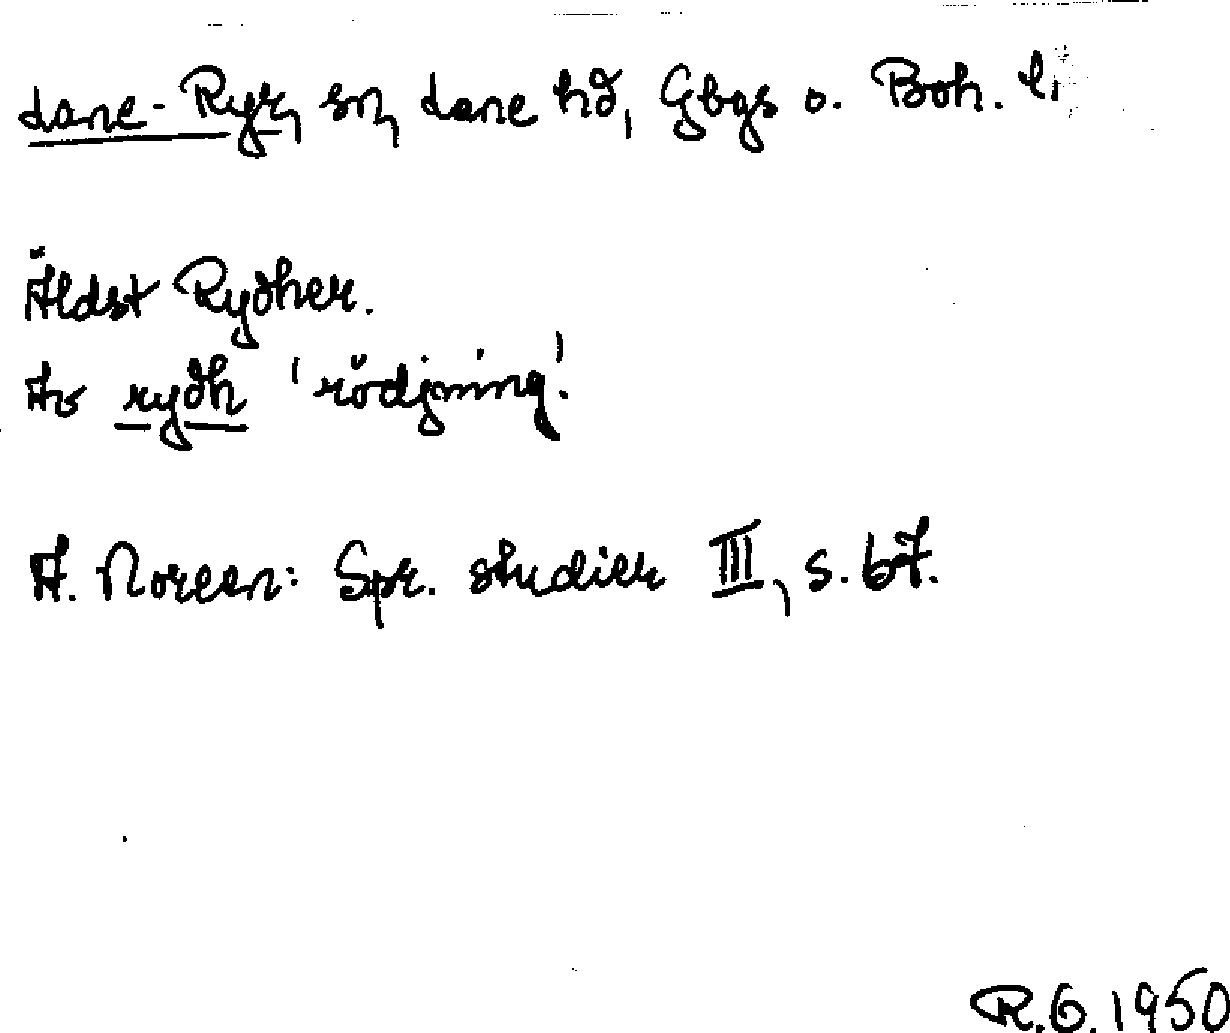 Lane-Ryr, sn, Lane hd, Gbgs o. Boh. l.
Äldst Rydher.
Av rydh 'rödjning'.
A. Noreen: Spr. studier III, s. 67.
R.G. 1950